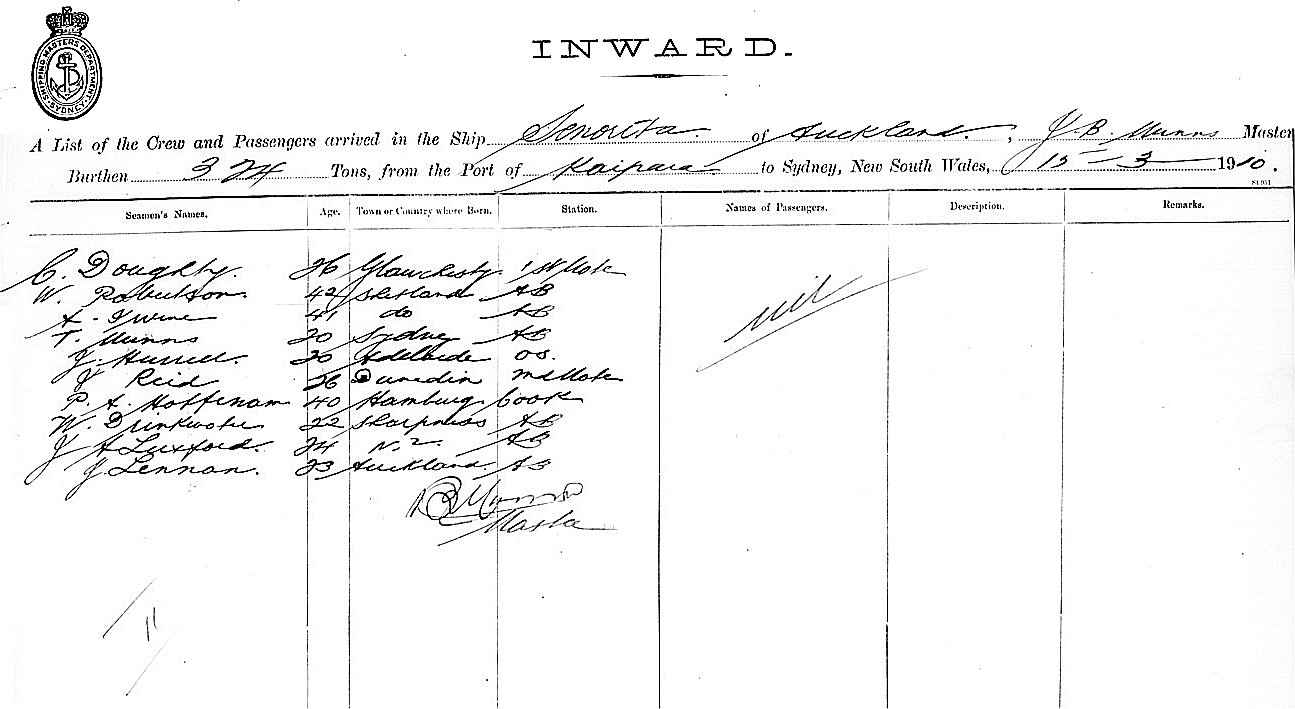 SHIPPING MASTERS DEPARTMENT SYDNEY
INWARD.
A List of the Crew and Passengers arrived in the Ship Senorita of Auckland, J. B. Munns Master
Burthen 324 Tons, from the Port of Kaipara to Sydney, New South Wales, 15 - 3 1910.
Seamen's Names. Age. Town or Country where Born. Station. Names of Passengers. Description. Remarks.
C. Doughty. 26 1st Mate
W. Robertson. 42 Shetland AB
A. Irvine 41 do AB
T. Munns 20 Sydney AB
J. Hurrell. 20 Adelaide OS.
J Reid 26 Dunedin 2nd Mate
P. A. Hoffenam 40 Hamburg Cook
W. Drinkwater 22 Sharpness AB
J A Luxford. 24 N.Z. AB
J Lennan. 23 Auckland. AB
nil
JB Munns
Master
11